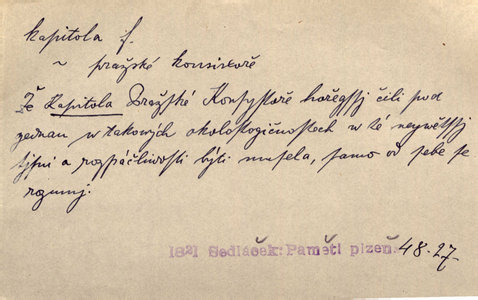 kapitola f.
~ pražské konsistoře
Že Kapitola Pražské Konsystoře hořegssj čili pod
gednau w takowých okolostogičnostech w té neywětssj
tjsni a rozpáčliwosti býti musela, samo od sebe se
rozumj.
1821 Sedláček: Paměti plzeň. 48.27.